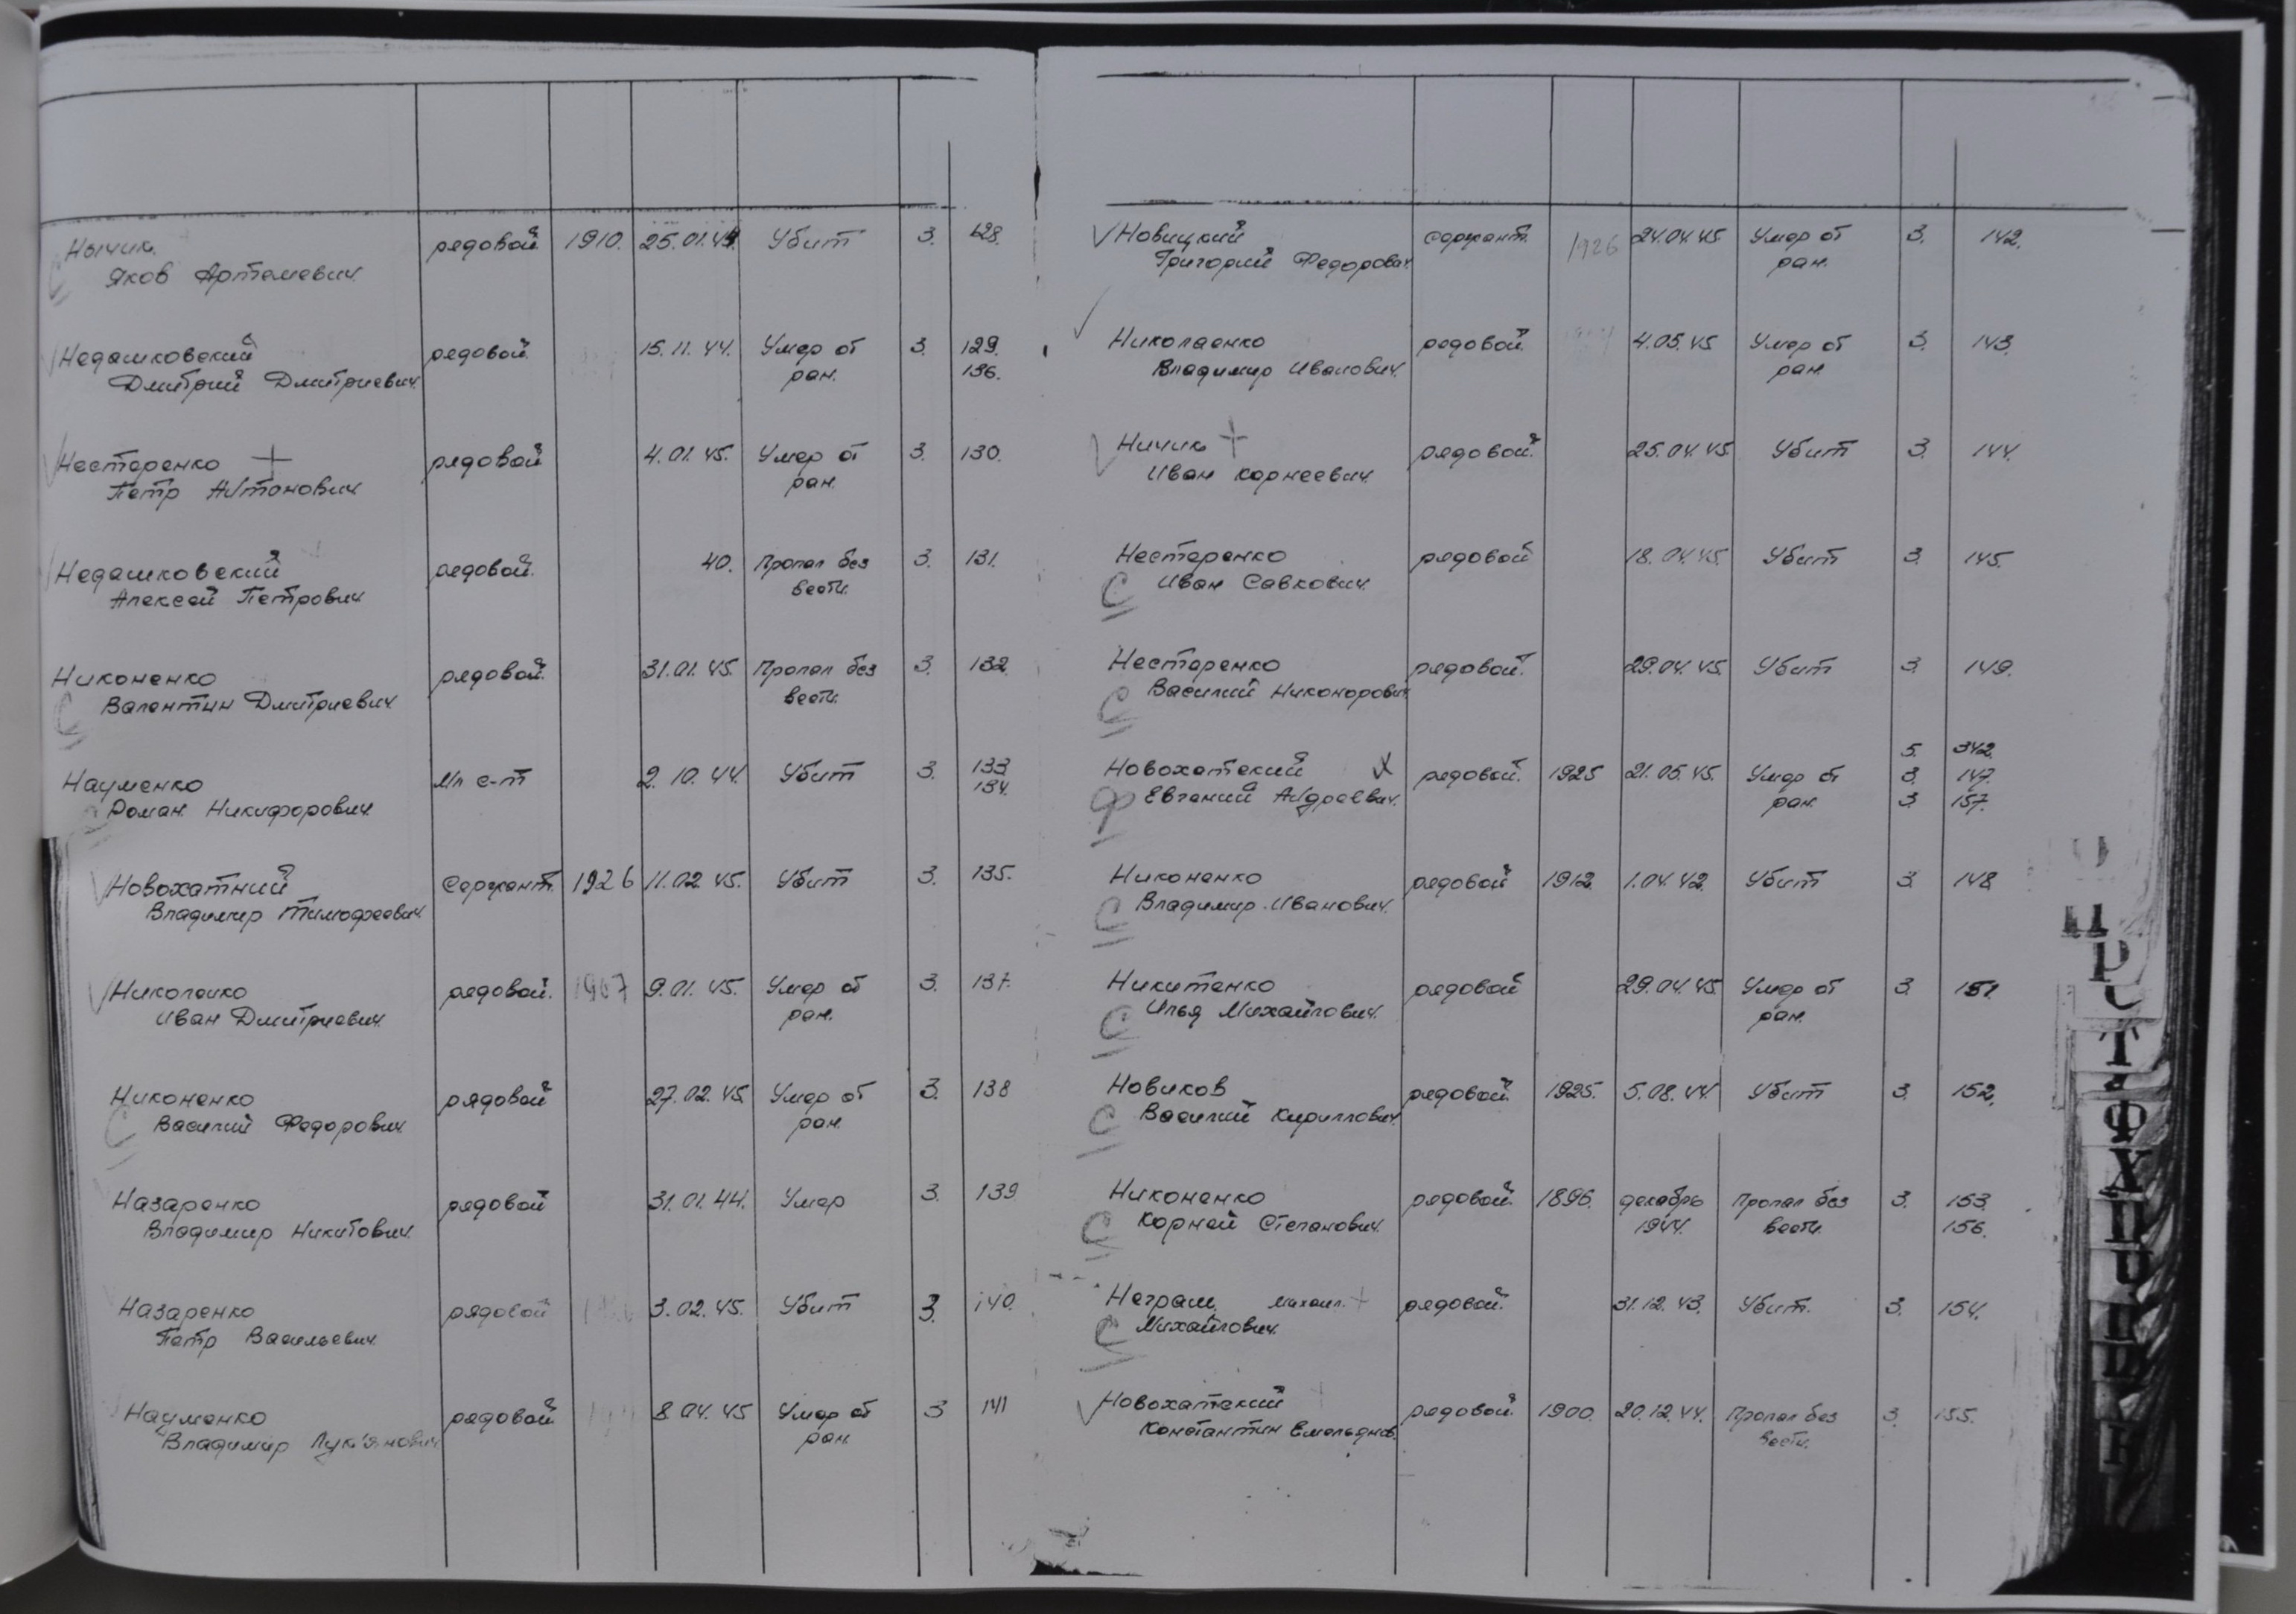 Нычик рядовой 1910. 25.01.44. Убит 3. 128.
Яков Артемевич.
Недашковский рядовой. 15.11.44. Умер от 3. 129.
Дмитрий Дмитриевич. ран. 136.
Нестеренко рядовой 4.01.45. Умер от 3. 130.
Петр Антонович ран.
Недашковский рядовой. 40. Пропал без 3. 131.
Алексей Петрович вести.
Никоненко рядовой. 31.01.45. Пропал без 3. 132.
С Валентин Дмитриевич. вести.
Науменко Мл с-т 2.10.44. Убит 3. 133.
Роман Никифорович. 134.
Новохатний Сержант. 1926 11.02.45. Убит 3. 135.
Владимир Тимофеевич.
Николаико рядовой. 1907 9.01.45. Умер от 3. 137.
Иван Дмитриевич. ран.
Никоненко рядовой 27.02.45. Умер от 3. 138
С Василий Федорович. ран.
Назаренко рядовой 31.01.44. Умер 3. 139.
Владимир Никитович.
Назаренко рядовой 3.02.45. Убит 3. 140.
Петр Васильевич.
Науменко рядовой 8.04.45 Умер от 3 141
Владимир Лук'янович ран.
Новицкий сержант. 1926 24.04.45. Умер от 3. 142.
Григорий Федорович. ран.
Николаенко рядовой. 4.05.45 Умер от 3. 143.
Владимир Иванович. ран.
Ничик рядовой. 25.04.45 Убит 3. 144.
Иван Корнеевич.
Нестеренко рядовой 18.04.45. Убит 3. 145.
С Иван Савкович.
Нестеренко рядовой. 29.04.45. Убит 3. 149.
С Василий Никонорович.
5. 342.
Новохатский рядовой. 1925 21.05.45. Умер от 3. 147.
Ф Евгений Андреевич. ран. 3. 157.
Никоненко рядовой 1912. 1.04.42. Убит 3. 148
С Владимир Иванович.
Никитенко рядовой 29.04.45 Умер от 3. 151.
С Илья Михайлович. ран.
Новиков рядовой. 1925. 5.08.44. Убит 3. 152.
С Василий Кириллович.
Никоненко рядовой. 1896. декабрь Пропал без 3. 153.
С Корней Степанович. 1944. вести. 156.
Неграш Михаил. рядовой. 31.12.43. Убит. 3. 154.
С Михайлович.
Новохатский рядовой. 1900. 20.12.44. Пропал без 3. 155.
Константин Емельянов. вести.
П
Р
С
Т
Ф
Х